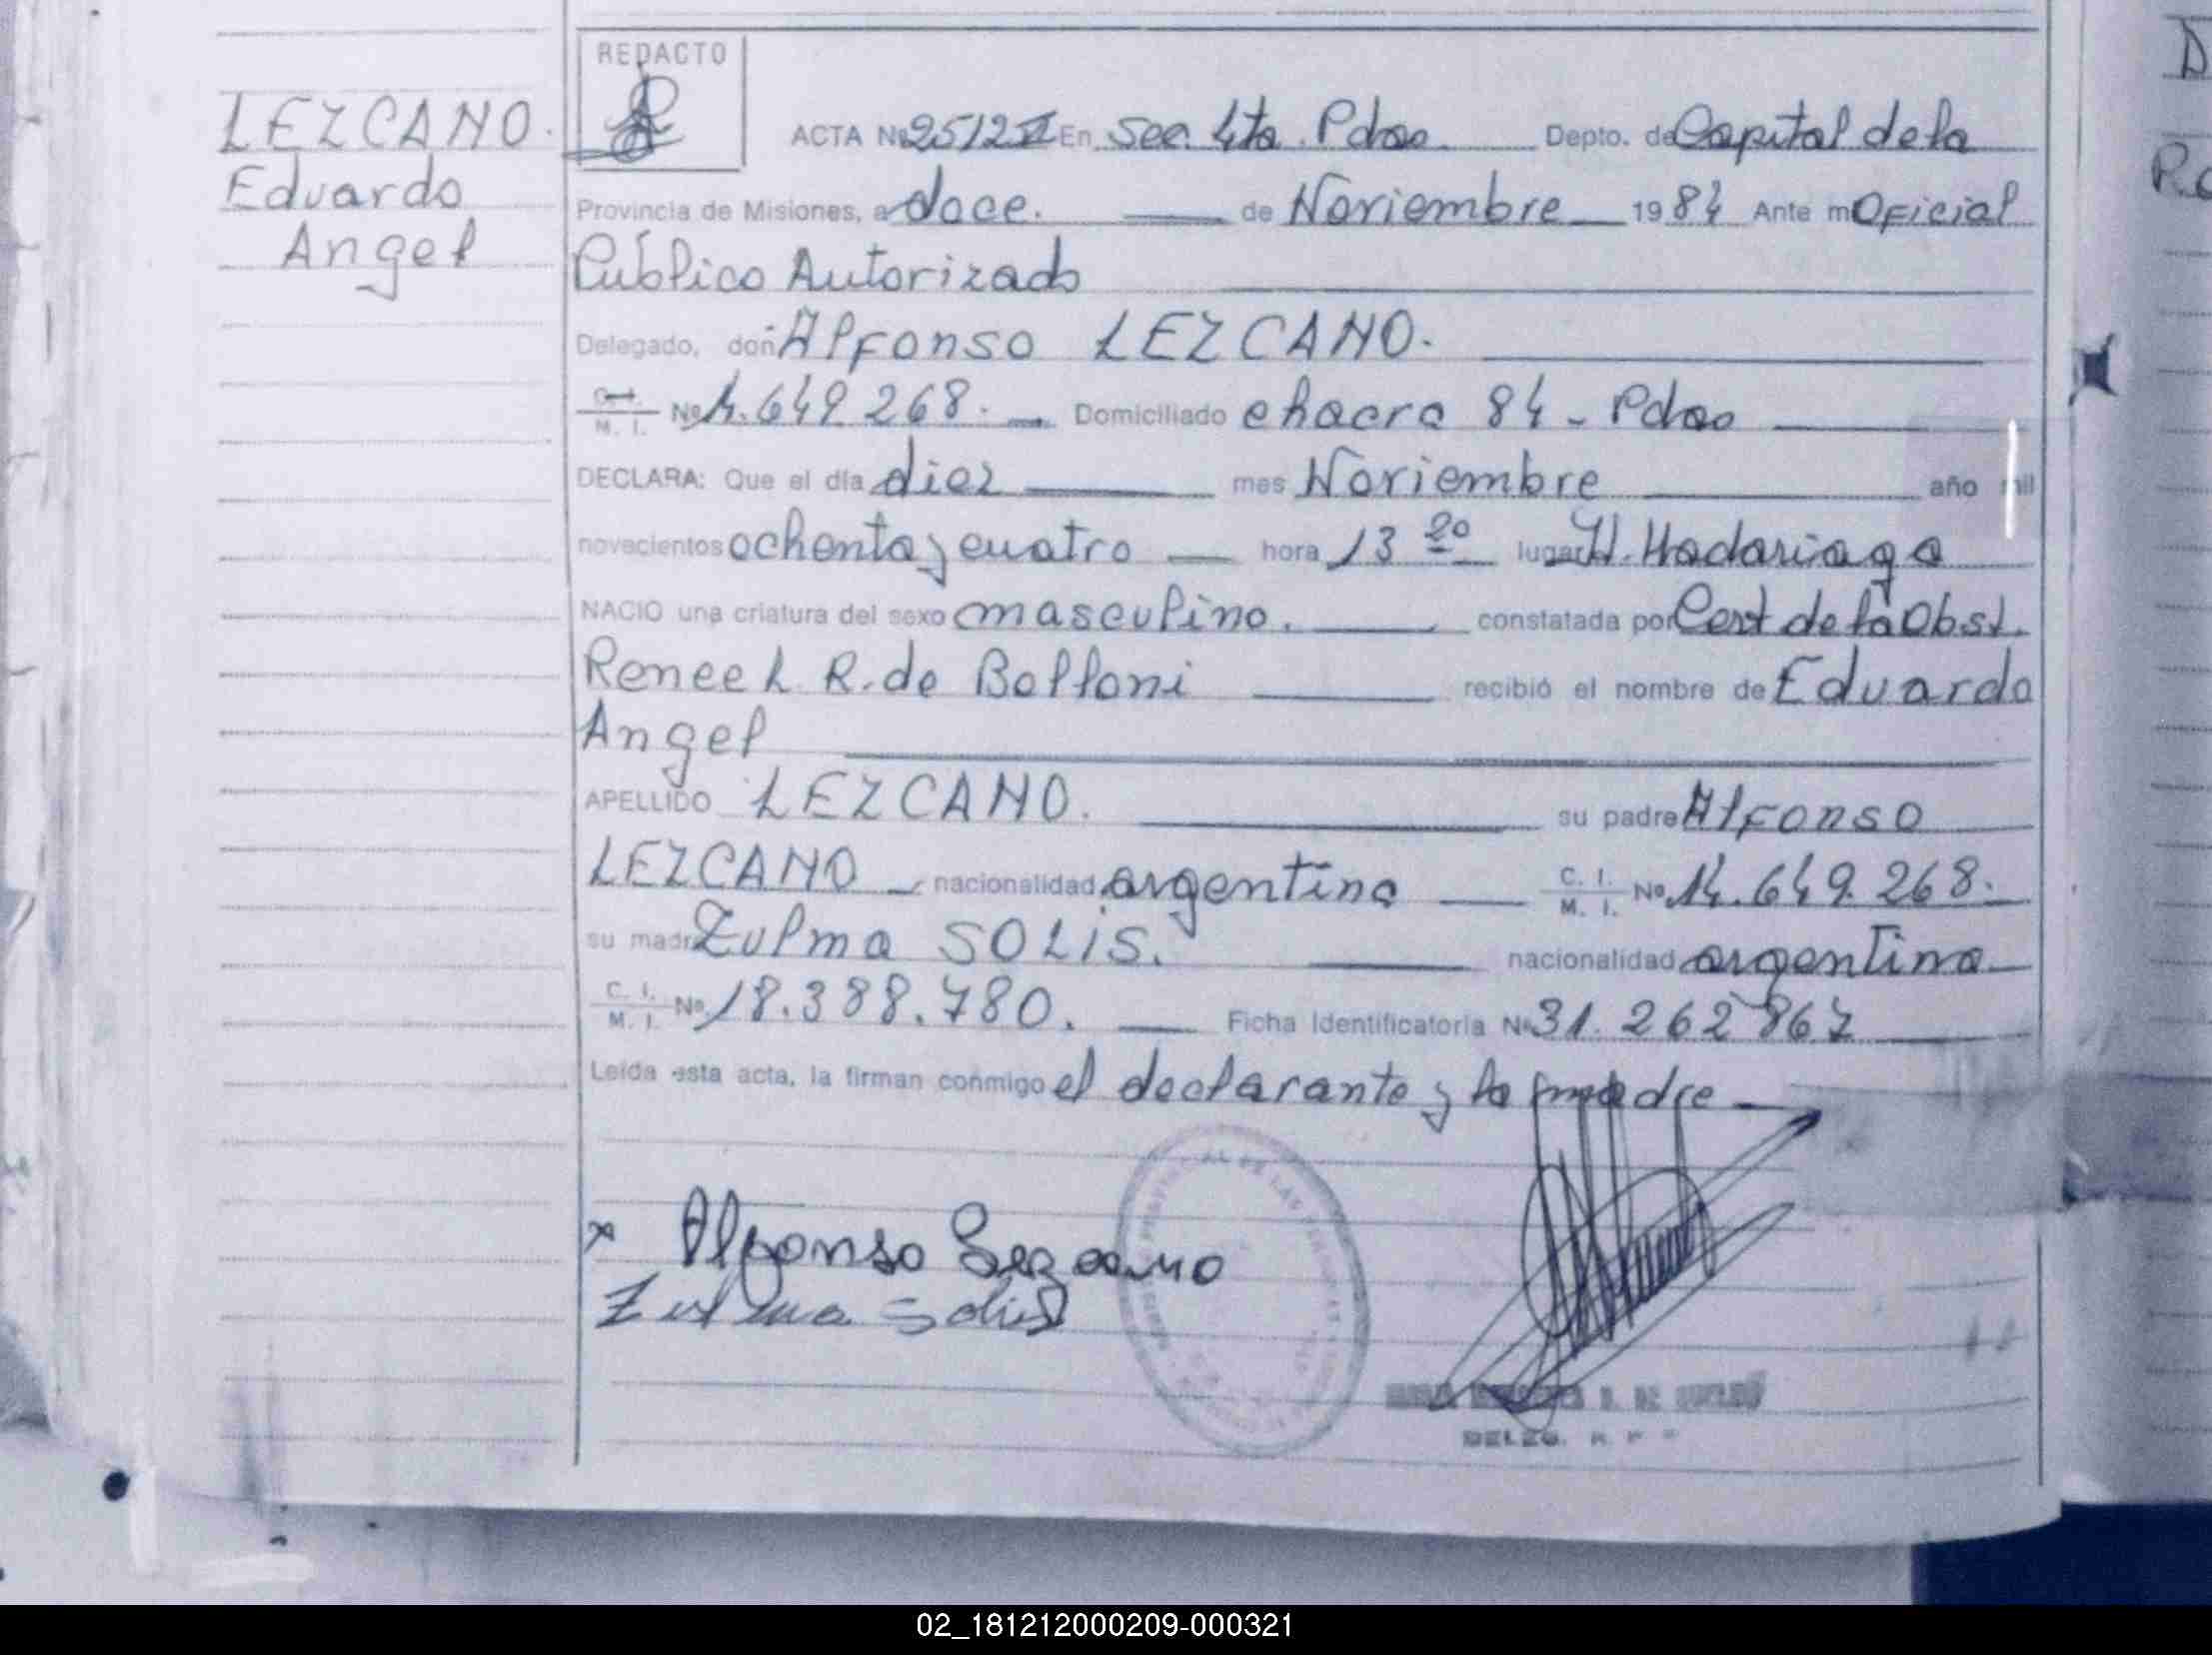 LEZCANO.
Eduardo
Angel
REDACTO
ACTA Nº 2512 II En Sec. 4ta. Pdas. Depto. de Capital de la
Provincia de Misiones, a doce. de Noviembre 1984 Ante mi Oficial
Público Autorizado
Delegado, don Alfonso LEZCANO.
C.I. M. I. Nº 14.649.268. Domiciliado chacra 84 - Pdas
DECLARA: Que el día diez mes Noviembre año mil
novecientos ochenta y cuatro hora 13 20 lugar H. Madariaga
NACIO una criatura del sexo masculino. constatada por Cert de la Obst.
Renee L. R. de Bolloni recibió el nombre de Eduardo
Angel
APELLIDO LEZCANO. su padre Alfonso
LEZCANO nacionalidad argentina C. I. M. I. Nº 14.649.268.
su madre Zulma SOLIS. nacionalidad argentina
C. I. M. I. Nº 18.388.780. Ficha Identificatoria Nº 31.262 867
Leída esta acta, la firman conmigo el declarante y la madre
x Alfonso Lezcano
Zulma Solis
DELEG. R. P.
02_181212000209-000321